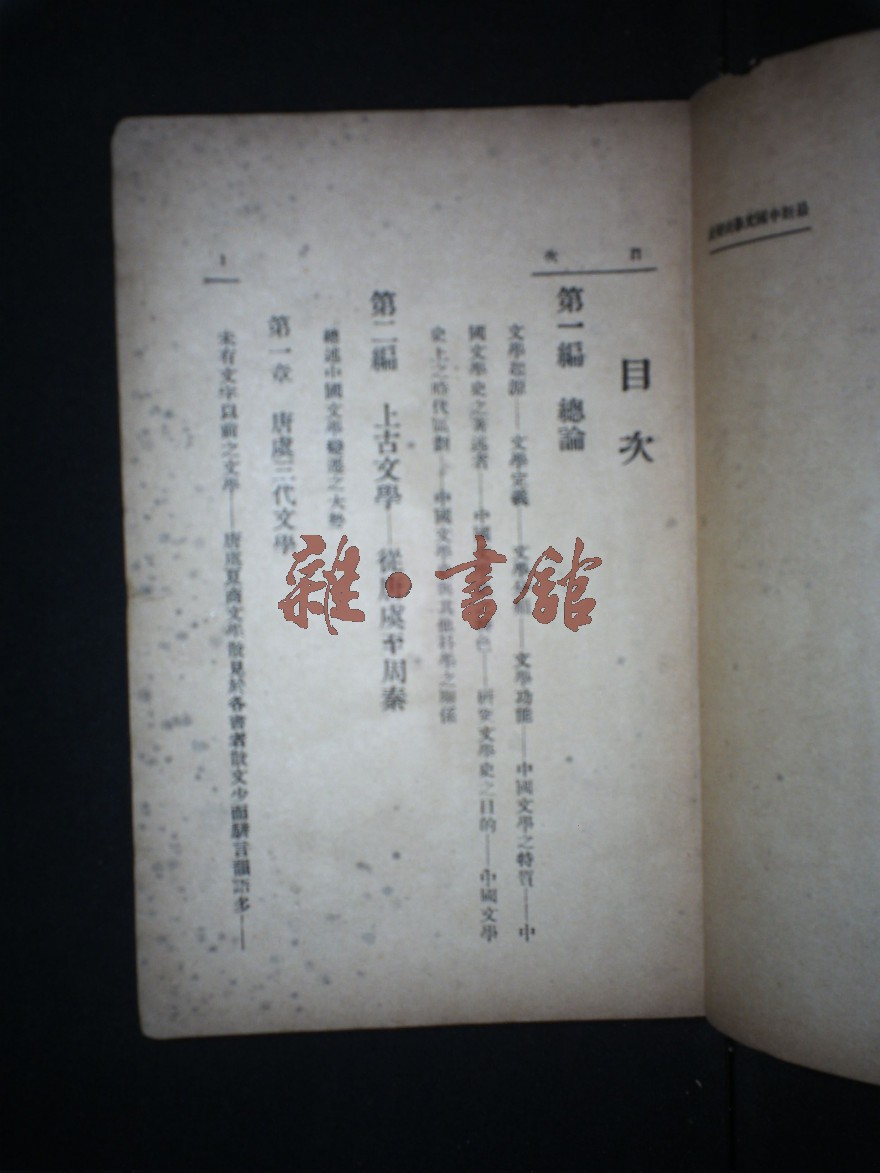 目次
目次
第一編 總論
文學起源——文學定義——文學——文學功能——中國文學之特質——中
國文學史之著述者——中國色——研究文學史之目的——中國文學
史上之時代區劃——中國文學與其他科學之關係
第二編 上古文學——從唐虞至周秦
總述中國文學變遷之大勢
第一章 唐虞三代文學
未有文字以前之文學——唐虞夏商文學散見於各書者散文少而駢言韻語多——
1
雜·書館